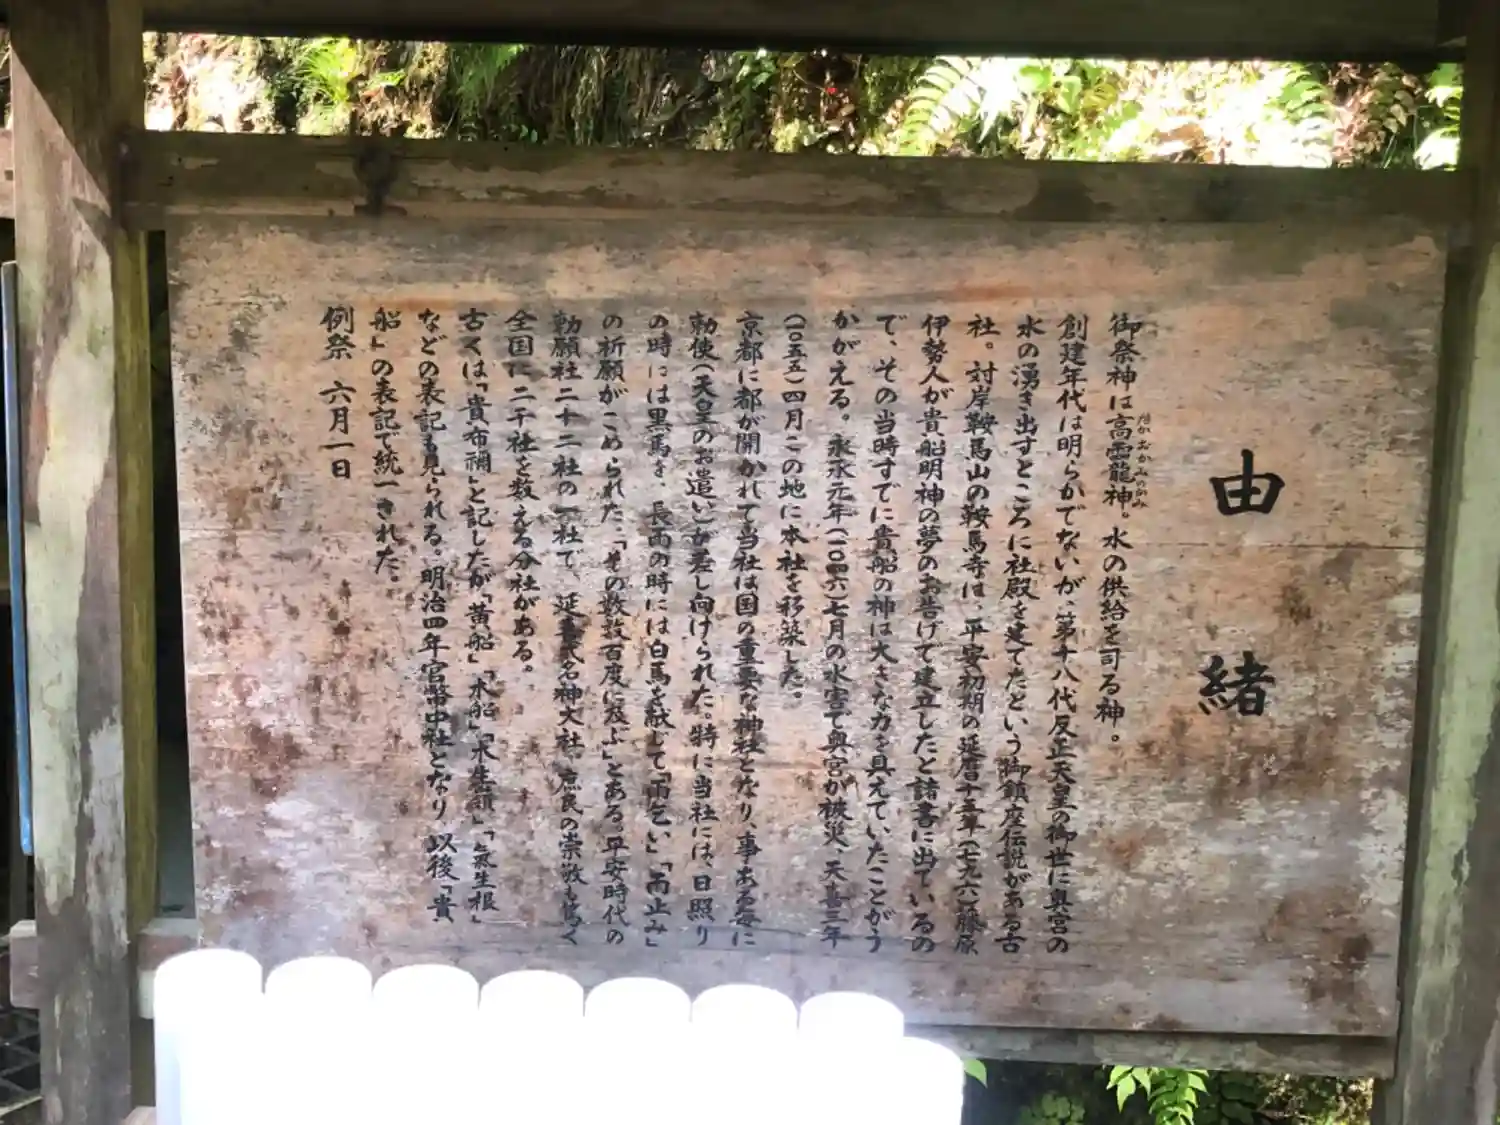 由緒
御祭神は高龗龍神。水の供給を司る神。
たかおかみのかみ
創建年代は明らかでないが、第十八代反正天皇の御世に奥宮の
水の湧き出すところに社殿を建てたという御鎮座伝説がある古
社。対岸鞍馬山の鞍馬寺は、平安初期の延暦十五年(七九六)藤原
伊勢人が貴船明神の夢のお告げで建立したと諸書に出ているの
で、その当時すでに貴船の神は大きな力を具えていたことがう
かがえる。永承元年(一〇四六)七月の水害で奥宮が被災、天喜三年
(一〇五五)四月この地に本社を移築した。
京都に都が開かれて当社は国の重要な神社となり、事ある毎に
勅使(天皇のお遣い)が差し向けられた。特に当社には、日照り
の時には黒馬を、長雨の時には白馬を献じて「雨乞い」「雨止み」
の祈願がこめられた。「その数数百度に及ぶ」とある。平安時代の
勅願社二十二社の一社で、延喜式名神大社、庶民の崇敬も篤く
全国に二千社を数える分社がある。
古くは「貴布禰」と記したが「黄船」「木船」「木生嶺」「氣生根」
などの表記も見られる。明治四年官幣中社となり以後「貴
船」の表記で統一された。
例祭 六月一日